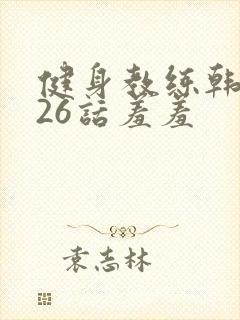 健身教练韩
26話羞羞
袁志林